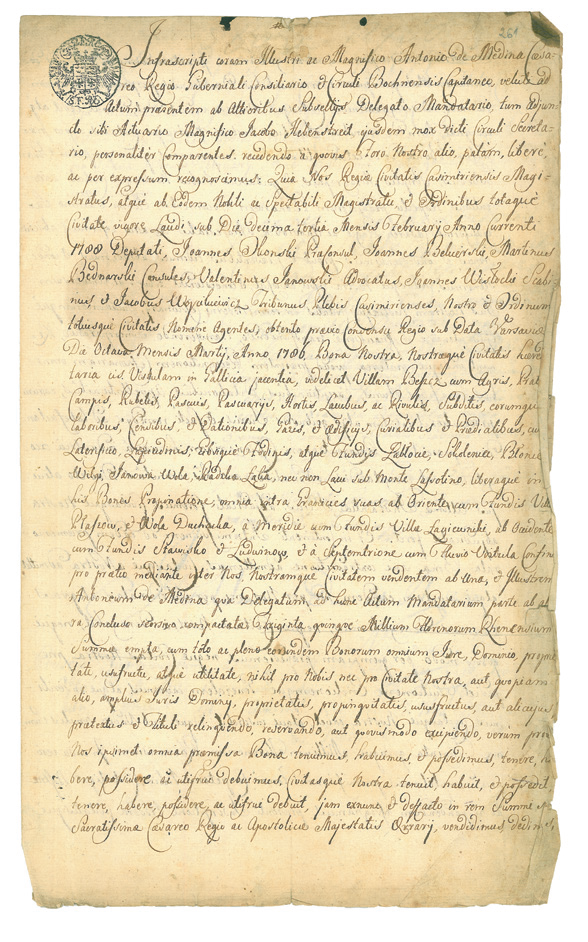 261
Infrascripti coram Illustri ac Magnifico Antonio de Medina Cæsa-
reo Regio Guberniali Consiliario & Circuli Bochnensis Capitaneo, velut ad
Actum præsentem ab Altioribus Subsellijs Delegato Mandatario, tum adjun
cto sibi Actuario Magnifico Jacobo Hebenstreit ejusdem mox dicti Circuli Secreta-
rio, personaliter Comparentes, recedendo à quovis Foro Nostro alio, palam, libere,
ac per expressum recognoscimus; Quia Nos Regiæ Civitatis Casimiriensis Magi-
stratus, atque ab Eodem Nobili ac Spectabili Magistratu, & Ordinibus totaque
Civitate vigore Laudi, sub Die decima tertia Mensis Februarij Anno Currenti
1788 Deputati, Joannes Præconsul, Joannes Martinus
Bednarski Consules, Valentinus Janowski Advocatus, Joannes Scabi-
nus, & Jacobus Tribunus Plebis Casimirienses, Nostro & Ordinum
totiusque Civitatis Nomine Agentes, obtento prævio Consensu Regio sub Data Varsaviæ
Die Octava Mensis Martij, Anno 1786, Bona Nostra, Nostræque Civitatis hære
ditaria cis Vistulam in Gallicia jacentia, videlicet Villam cum Agris, Prat
Campis, Rubetis, Pascuis, Pascuarijs, Hortis, Lacubus, ac Rivulis, Subditis, eorumque
laboribus, Censibus, & Dationibus, & ædificijs, Curialibus & Prædialibus, cu
Laterificio, atque Fundis Zablocie,
Janowa Wola, nec non sub Monte Lassotino, liberaque in
his Bonis Propinatione, omnia intra Granicies suas ab Oriente cum Fundis Villæ
Plaszow, & Wola Duchacka, à Meridie cum Fundis Villæ ab Occidente
cum Fundis & Ludwinow, & à Septemtrione cum Fluvio Vistula Confinia
pro pretio mediante inter Nos, Nostramque Civitatem vendentem ab Una, & Illustrem
Antonium de Medina qua Delegatum, ad hunc Actum Mandatarium parte ab al
ra, Concluso Triginta quinque Millium Florenorum Rhenensium
Summæ empta, cum toto ac pleno eorundem Bonorum omnium Jure, Dominio, proprie
tate, usufructu, atque utilitate, nihil pro Nobis nec pro Civitate Nostra, aut quopiam
alio, amplius Juris Dominij, proprietatis, propinquitatis, ususfructus, aut alicujus
prætextus & Tituli relinquendo, reservando, aut quovismodo excipiendo, verum prout
Nos ipsimet omnia præmissa Bona tenuimus, habuimus, & possedimus, tenere, ha
bere, possidere, ac utifrui debuimus, Civitasque Nostra tenuit, habuit, & possedit
tenere, habere, possidere, ac utifrui debuit, jam exnunc & defacto in rem Summe
Sacratissimæ Cæsareo Regiæ ac Apostolicæ Majestatis Ærarij, vendidimus, dedimus,